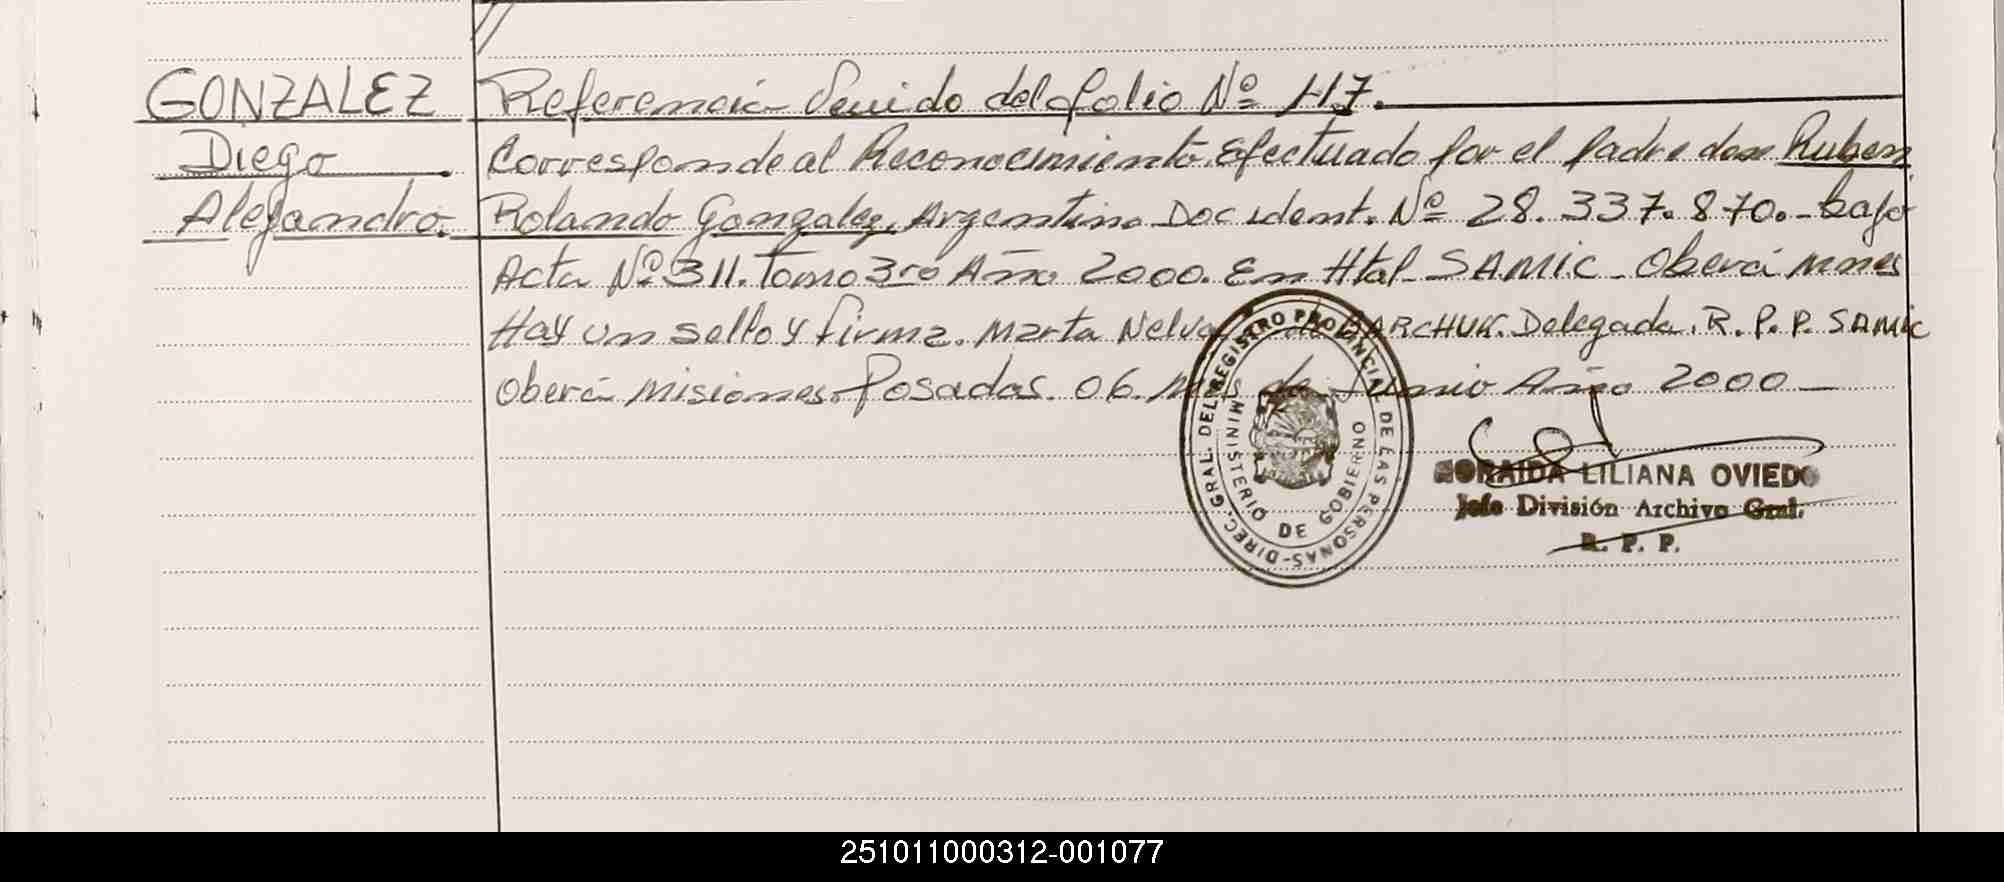 GONZALEZ
Diego
Alejandro.
Referencia Venido del folio Nº 117.
Corresponde al Reconocimiento Efectuado por el padre don Ruben
Rolando Gonzalez, Argentino Doc ident. Nº 28.337.870.- bajo
Acta Nº 311. Tomo 3ro Año 2000. En Htal. SAMIC - Oberá Mnes
Hay un sello y firma. Marta Nelva de BARCHUK. Delegada. R. P. P. SAMIC
Oberá Misiones. Posadas. 06. Mes de Junio Año 2000 -
DIREC. GRAL. DEL REGISTRO PROVINCIAL DE LAS PERSONAS-
MINISTERIO DE GOBIERNO
LILIANA OVIEDO
Jefe División Archivo Gral.
R. P. P.
251011000312-001077